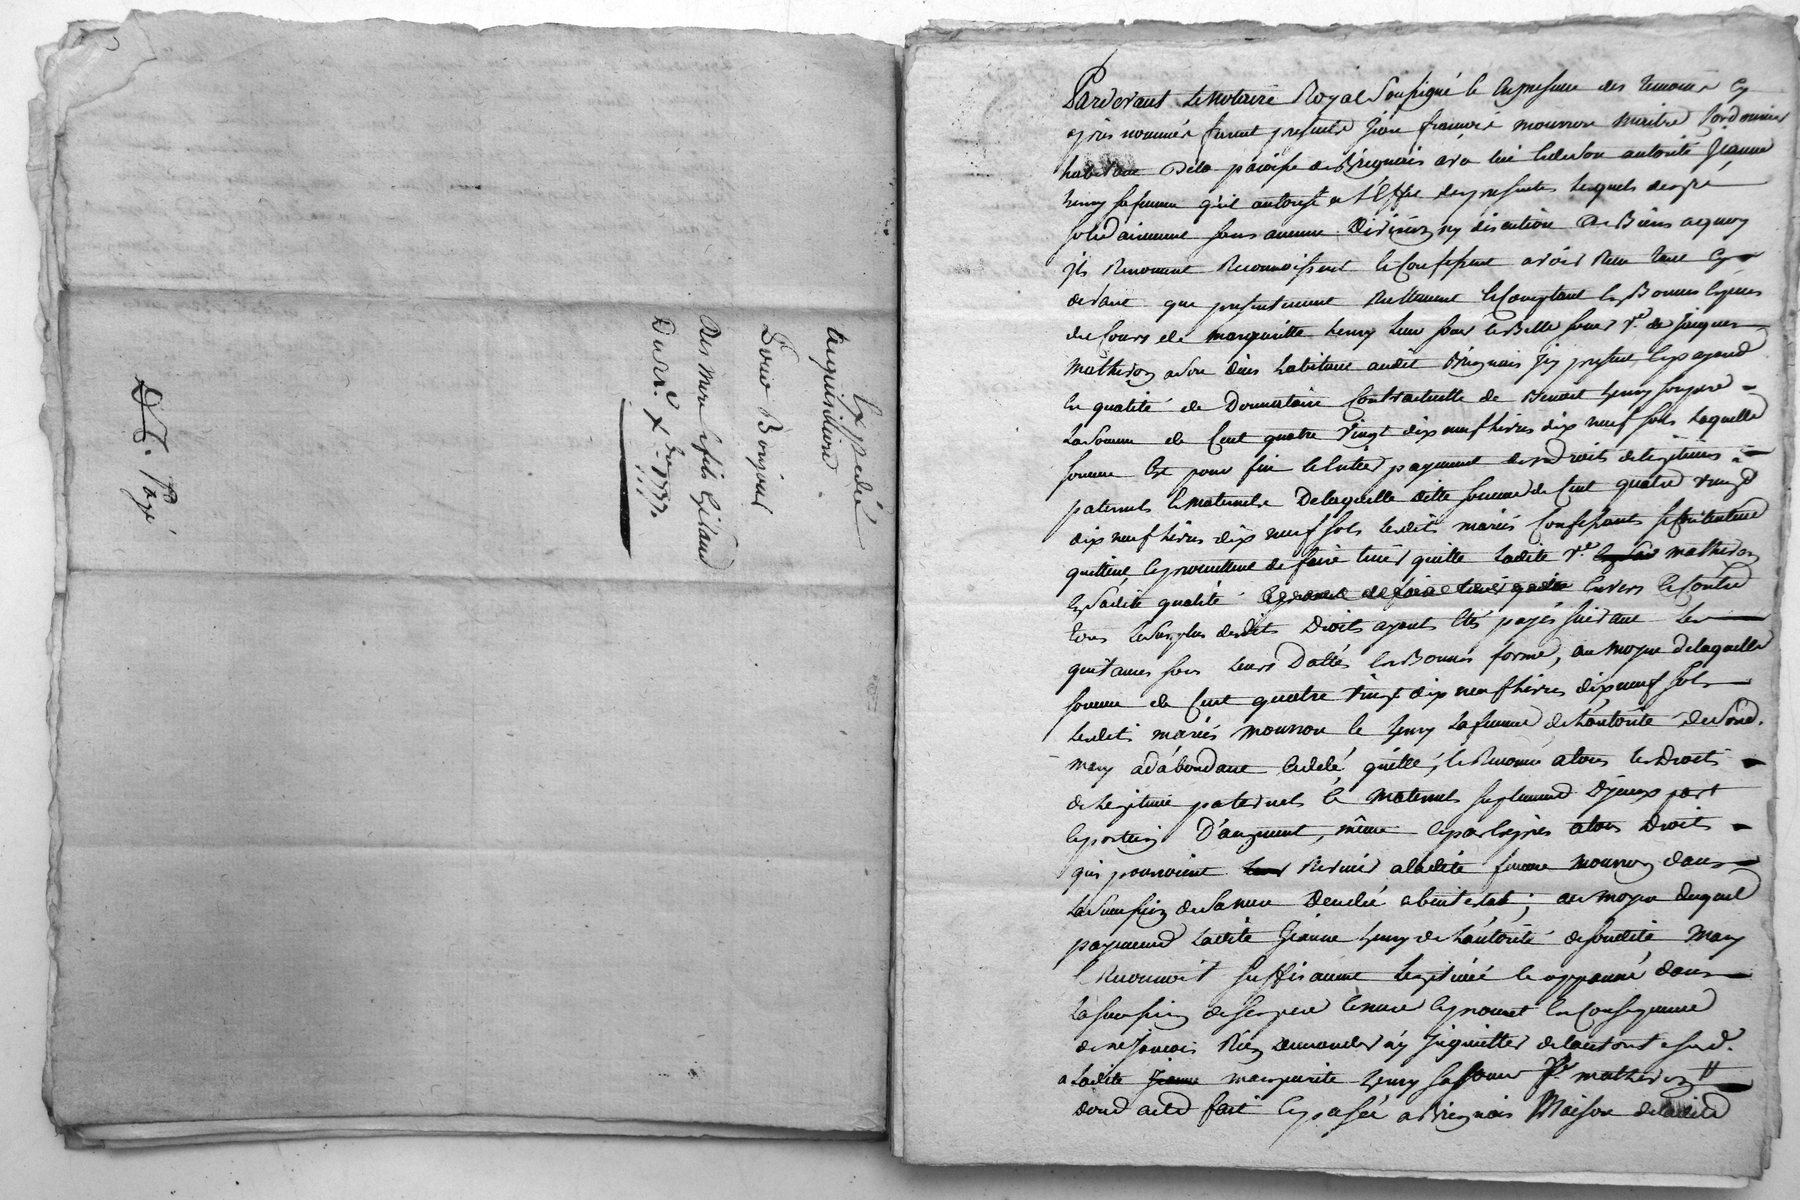 Expedié
Acquisition
Louis Bonjour
Des mere et fils Gilaud
Du
Pardevant le Notaire Royal Soussigné et en presence des temoins cy
apres nommés furent presents Jean françois mounou maitre Cordonnier
habitant de la paroisse de Brignais avec lui et de son autorité Jeanne
henry sa femme qu'il autorise a l'Effet des presentes lesquels de gré
solidairement sans aucune division ny discution de Biens a quoy
ils Renoncent Reconnoissent et Confessent avoir Reçu tant cy
devant que presentement Reellement et Comptant en Bonnes Especes
de Cours de marguerite henry leur sœur et Belle sœur v.e de Jacques
Matheron habitant audit Brignais icy presente et payant
en qualité de Donnataire Contractuelle de Benoit henry son pere
La Somme de Cent quatre vingt dix neuf livres dix neuf sols laquelle
somme Est pour fin et Entier payement des droits de legitimes
paternels et maternels De laquelle ditte somme de Cent quatre vingt
dix neuf livres dix neuf sols lesdits mariés Confessants se Contentent
quittent et promettent de faire tenir quitte ladite v.e matheron
en sadite qualité Envers et Contre
tous le surplus desdits Droits ayant Etés payés suivant les
quitances sous leurs Dattes En Bonnes forme, au moyen de laquelle
somme de Cent quatre vingt dix neuf livres dix neuf sols
lesdits mariés mounou et henry la femme de l'autorité de sond.
mary ont d'abondant Cedé quitté, et Renoncé a tous les Droits
de Legitime paternels et maternels suplement d'yceux part
et portion D'augment, même a tous Droits
qui pouroient Revenir a ladite femme mounou dans
la Succession de sa mere Decedée abintestat; au moyen duquel
payement ladite Jeanne henry de l'autorité de sondit mary
Reconnoit suffisamment legitimée et appannée dans
la succession de ses pere et mere et promet En Consequence
de ne Jamais Rien Demander ny Inquietter de l'autorité sud.
a Ladite Jeanne marguerite henry sa sœur v.e matheron
dont acte fait et passé a Brignais Maison de ladite